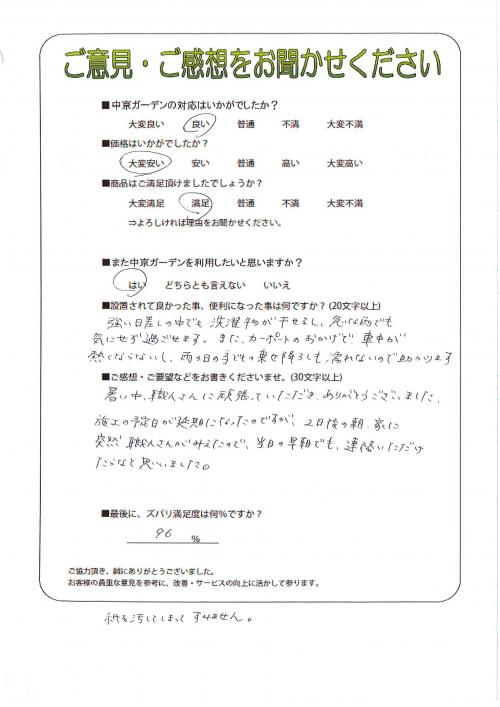 ご意見・ご感想をお聞かせください
■中京ガーデンの対応はいかがでしたか？
大変良い 良い 普通 不満 大変不満
■価格はいかがでしたか？
大変安い 安い 普通 高い 大変高い
■商品はご満足頂けましたでしょうか？
大変満足 満足 普通 不満 大変不満
⇒よろしければ理由をお聞かせください。
■また中京ガーデンを利用したいと思いますか？
はい どちらとも言えない いいえ
■設置されて良かった事、便利になった事は何ですか？(20文字以上)
強い日差しの中でも洗濯物が干せるし、急な雨でも
気にせず過ごせます。また、カーポートのおかげで、車中が
熱くならないし、雨の日の子どもの乗せ降ろしも濡れないので助かります
■ご感想・ご要望などをお書きくださいませ。(30文字以上)
暑い中、職人さんに頑張っていただき、ありがとうございました。
施工の予定日が延期になったのですが、2日後の朝、家に
突然職人さんがみえたので、当日の早朝でも、連絡いただけ
たらなと思いました。
■最後に、ズバリ満足度は何%ですか？
96 %
ご協力頂き、誠にありがとうございました。
お客様の貴重な意見を参考に、改善・サービスの向上に活かして参ります。
紙を汚してしまってすみません。